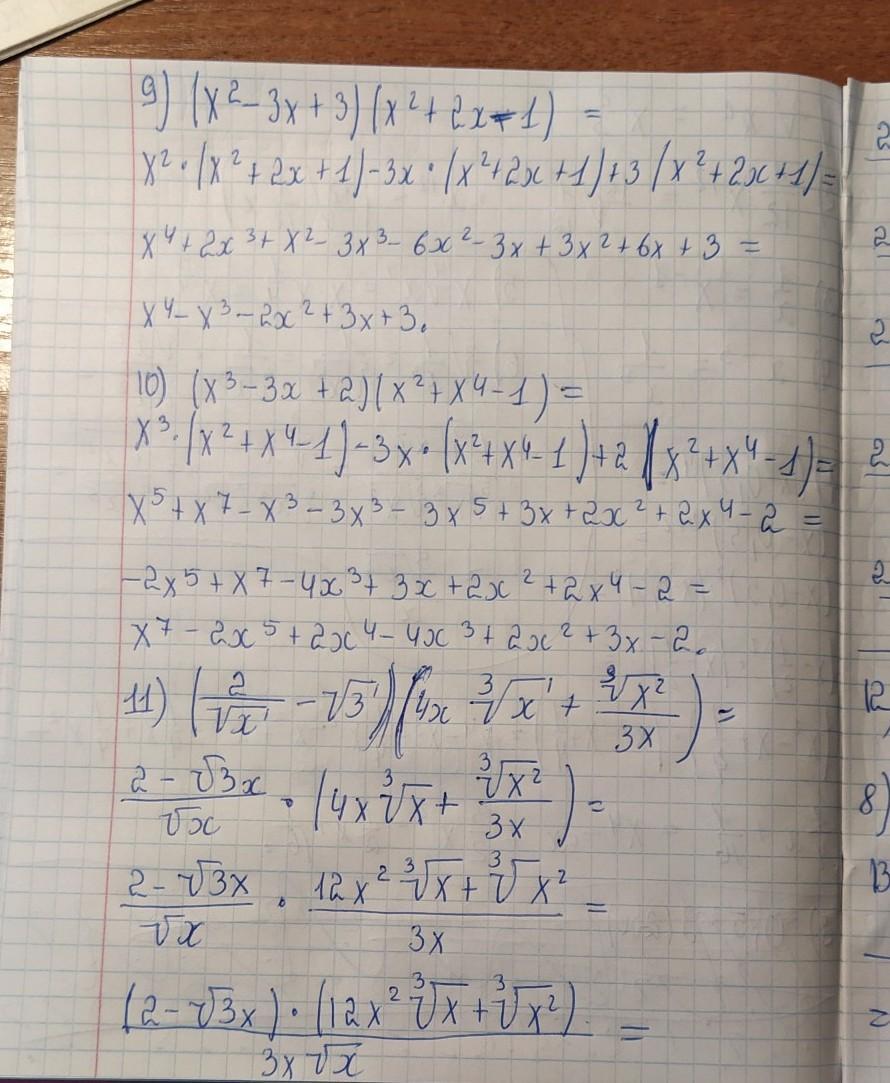 9) (x² - 3x + 3)(x² + 2x - 1) =
x² · (x² + 2x + 1) - 3x · (x² + 2x + 1) + 3 (x² + 2x + 1) =
x⁴ + 2x³ + x² - 3x³ - 6x² - 3x + 3x² + 6x + 3 =
x⁴ - x³ - 2x² + 3x + 3.
10) (x³ - 3x + 2)(x² + x⁴ - 1) =
x³ · (x² + x⁴ - 1) - 3x · (x² + x⁴ - 1) + 2 (x² + x⁴ - 1) =
x⁵ + x⁷ - x³ - 3x³ - 3x⁵ + 3x + 2x² + 2x⁴ - 2 =
-2x⁵ + x⁷ - 4x³ + 3x + 2x² + 2x⁴ - 2 =
x⁷ - 2x⁵ + 2x⁴ - 4x³ + 2x² + 3x - 2.
11) (2/√x - √3)(4x ∛x + ∛x²/3x) =
2 - √3x/√x · (4x ∛x + ∛x²/3x) =
2 - √3x/√x · 12x² ∛x + ∛x²/3x =
(2 - √3x) · (12x² ∛x + ∛x²)/3x √x =
2
2
2
2
2
12
8)
13